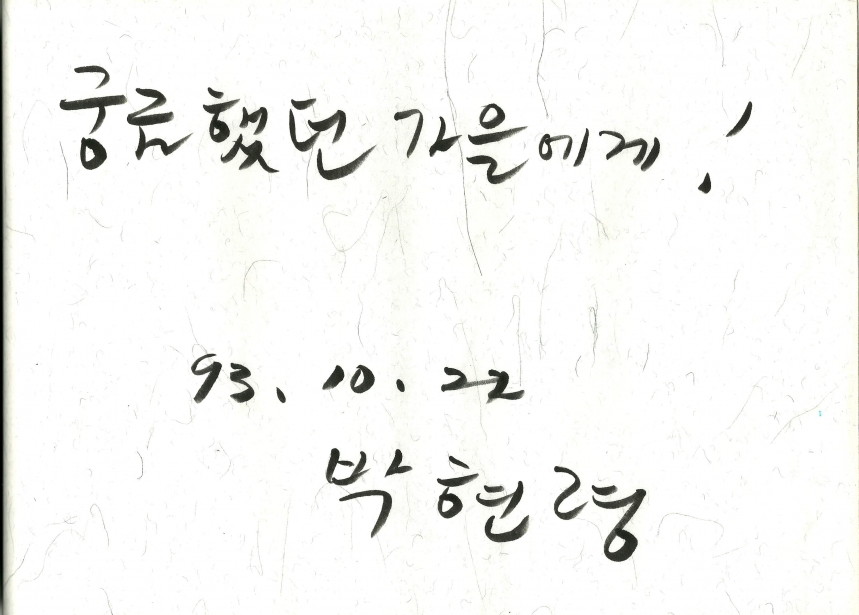 궁금했던 가을에게!
93. 10. 22
박현령